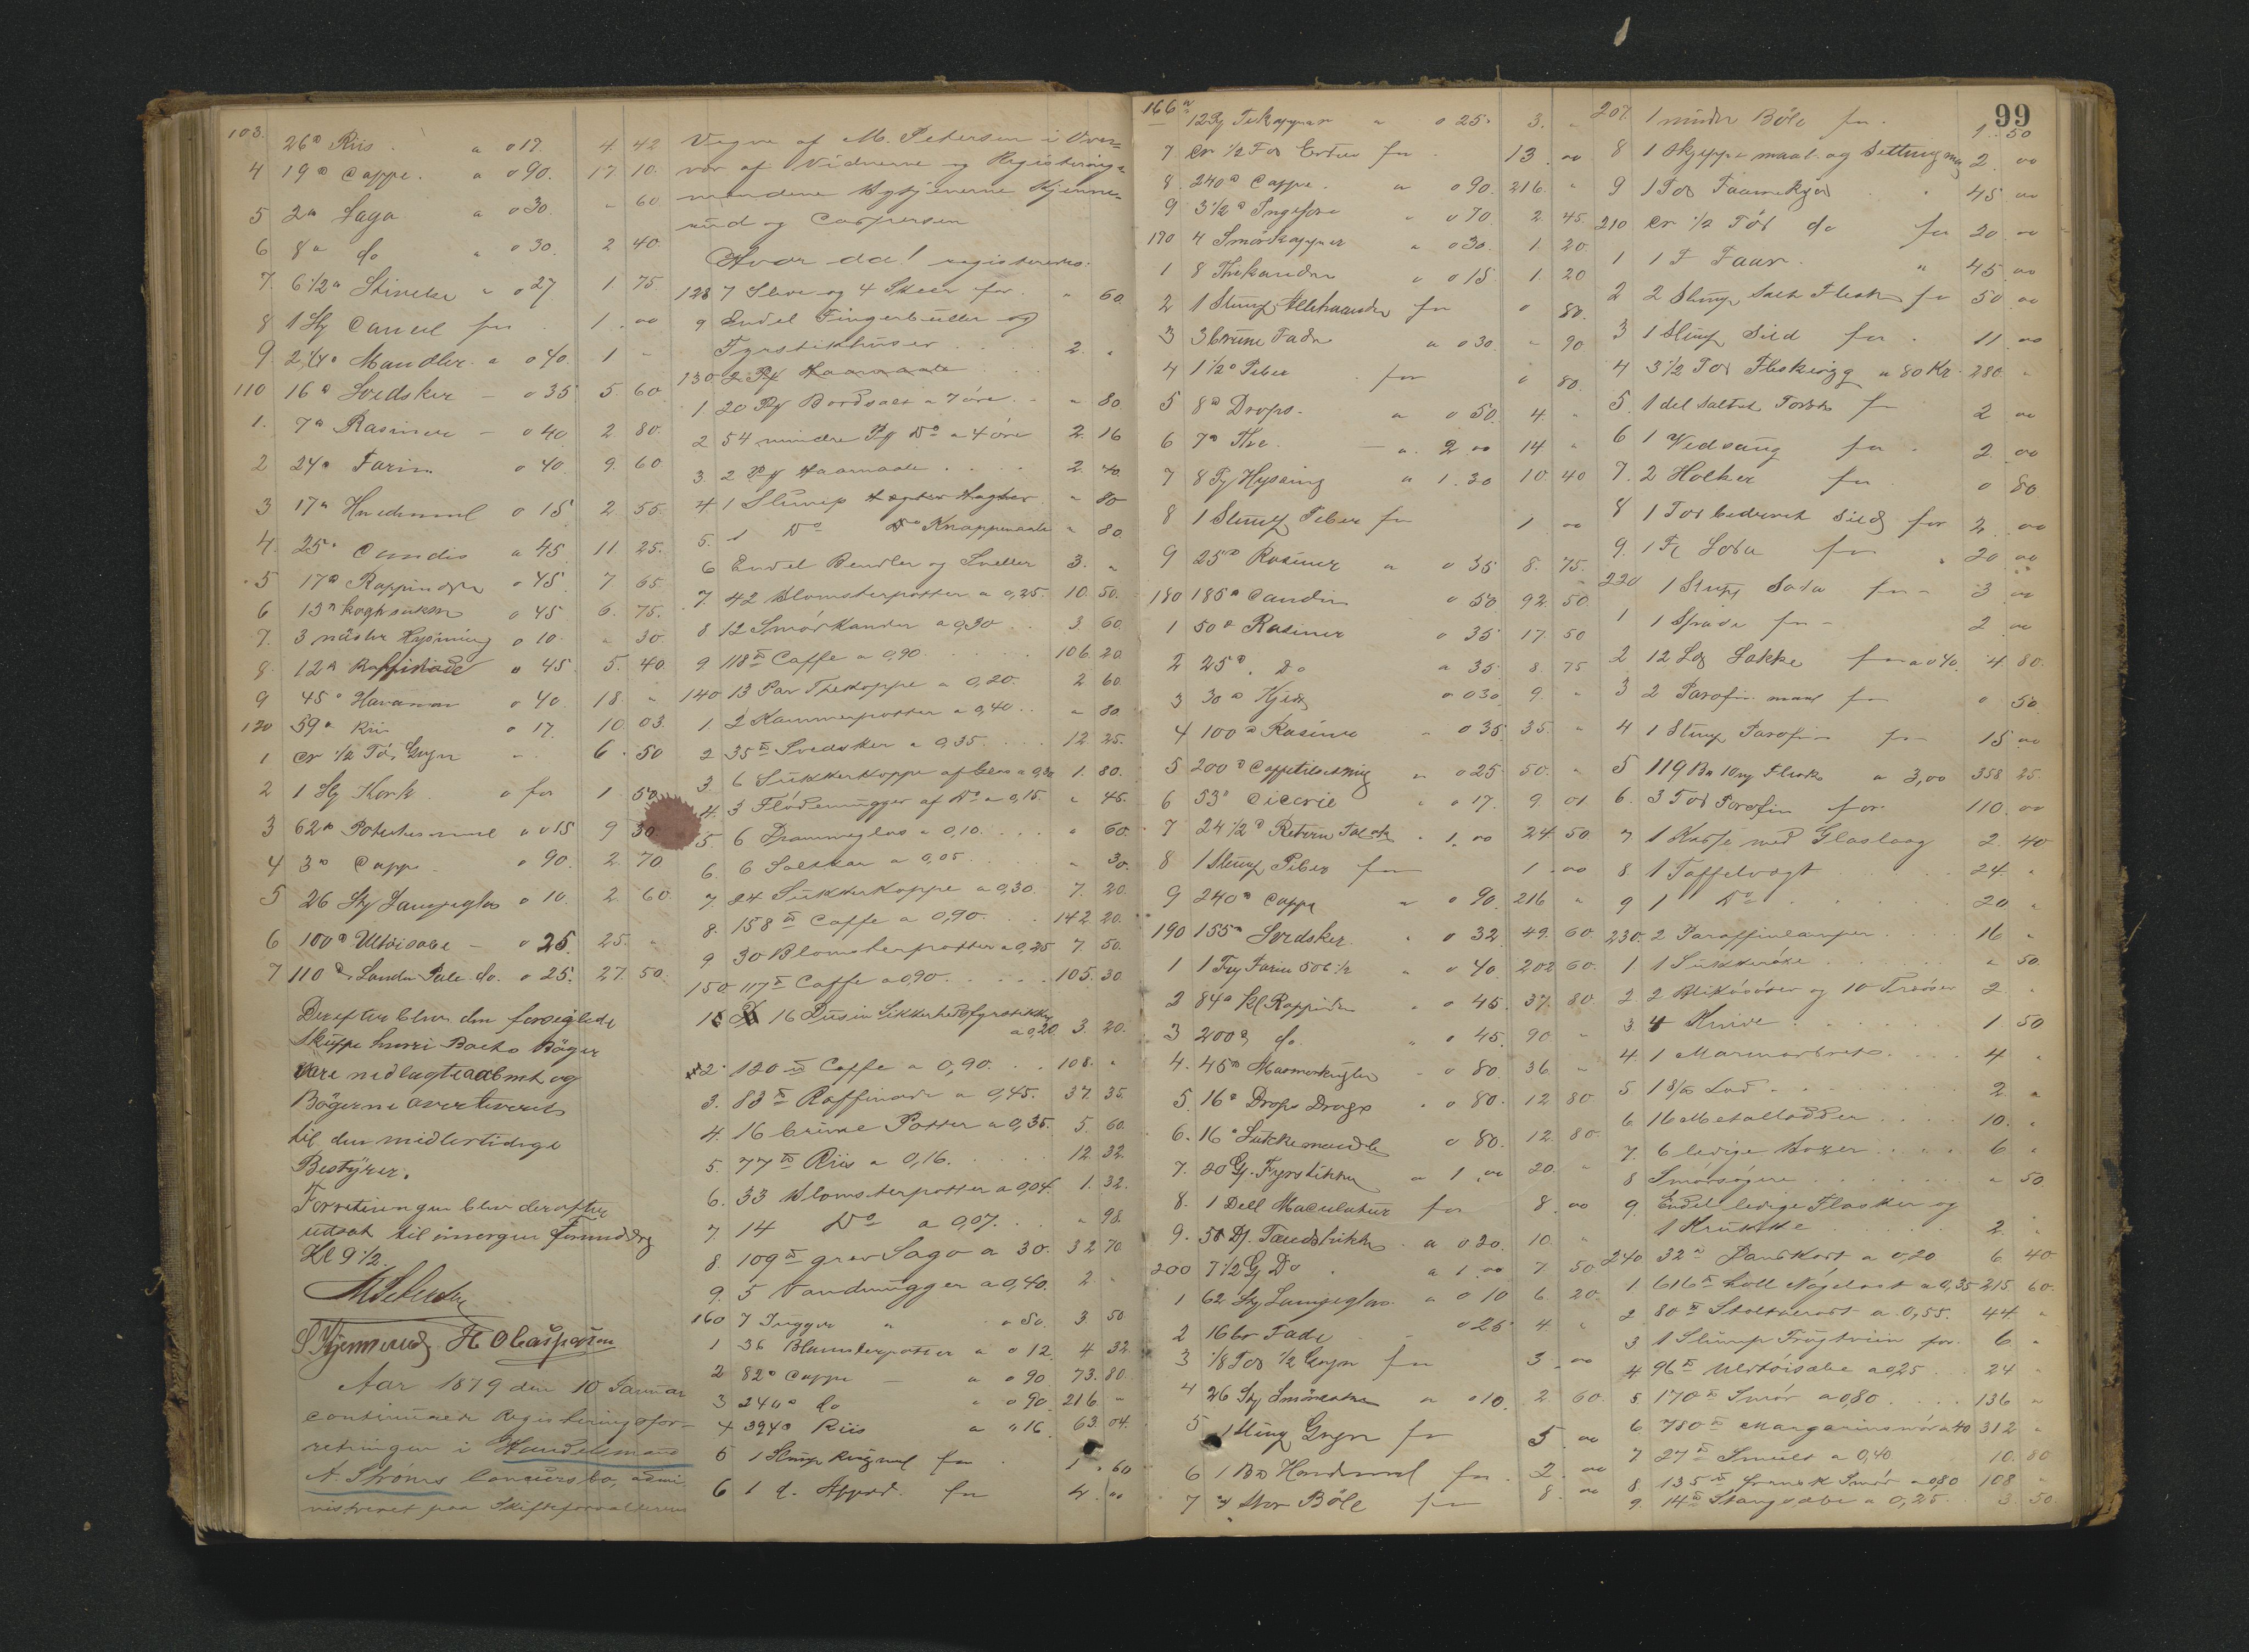 103. 26 ℔ Riis a 0 17. 4 42
4 19 ℔ Caffe. a 0 90. 17 10.
5 2 " Sago a 0 30 " 60
6 8 " do " 0 30. 2 40.
7 6 1/2 " Stivelse " 0 27 1 75
8 1 Sk Caneel for 1. 00
9. 2 1/4 " Mandler a 0 40. 1 "
110 16 ℔ Svedsker - 0 35 5. 60.
1. 7 " Rasiner - 0 40 2. 80.
2 24 " Farin 0 40 9. 60
3 17 " 0 15 2. 55.
4. 25 " Candis a 45 11. 25.
5 17 ℔ 0 45 7 65
6 15 " 0 45 6. 75.
7. 3 Hysining 0 10. " 30.
8. 12 " Raffinade 0 45. 5. 40
9 45 " Havanna 0 40 18. "
120 59 " Riis 0 17. 10. 03.
1 en 1/2 Tø. Gryn 6. 50
2 1 Sk Kork a for 1. 50
3 62 ℔ Potetesmel a 0 15 9 30.
4 3 ℔ Caffe 0 90. 2. 70
5 26 Stk Lampeglas 0 10. 2. 60
6 100 ℔ Uldtøisæbe - 0 25. 25. "
7 110 ℔ do. 0 25. 27. 50.
Derefter blev den forseglede
Skuffe hvori Boets Bøger
vare nedlagte aabnet og
Bøgerne
til den midlertidige
Bestyrer.
Forretningen blev derefter
udsat til imorgen Formiddag
Kl 9 1/2.
S Kjennerud. H O Caspersen
Aar 1879 den 10 Januar
continuerede Registreringsfor-
retningen i Handelsmand
A. Strøms Concursbo, admi
nistreret paa Skifteforvalterens
Vegne af M. Petersen i Over=
vær af Vidnerne og Registrerings
mændene Kjenne=
rud og Caspersen
Hvor da! registreredes:
128 7 Sleve og 4 Skeer for. " 60
9 Endel Fingerbøller og
Fyrstikhuser .... 2. "
130 2 Pk Haarnaale ...
1 20 Pk Bordsalt a 7 øre. - " 80
2 54 mindre Pk Do a 4 øre 2. 16
3. 2 Pk Haarnaale .... 2. 40.
4 1 Slump Hægter " 80
5. 1 Do Do Knappenaale " 80
6 Endel Bendler og 3. "
7. 42 Blomsterpotter a 0,25. 10. 50.
8 12 Smørkander a 0,30 .. 3 60
9 118 ℔ Caffe a 0,90. ..... 106. 20
140 13 Par Thekoppe a 0,20. 2 60.
1. 2 Kammerpotter a 0,40 .. " 80
2 35 ℔ Svedsker a 0,35. ... 12. 25.
3. 6 Sukkerkoppe af Glas a 0,30 1. 80.
4. 3 Flødemugger af Do a 0,15. " 45.
5. 6 Dramme­glas a 0,10. ... " 60.
6. 6 Saltkar a 0,05. ... " 30.
7. 24 Sukkerkoppe a 0,30. 7. 20
8. 158 ℔ Caffe a 0,90. .. 142. 20.
9 30 Blomsterpotter a 0,25 7. 50.
150 117 ℔ Caffe a 0,90. ..... 105. 30.
1 16 Dusin Sikkerhedsfyrstikker
a 0,20 3. 20.
2. 120 ℔ Caffe a 0,90. .. 108. "
3. 83 ℔ Raffinade a 0,45. 37. 35.
4. 16 brune Potter a 0,35. 5. 60.
5. 77 ℔ Riis a 0,16. .... 12. 32.
6. 33 Blomsterpotter a 0,04. 1. 32.
7. 14 Do a 0,07. .. " 98.
8. 109 ℔ grov Sago a 30. 32 70
9. 5 Vandmugger a 0,40. 2 "
160 7 Mugger " " 50. 3 50
1 36 Blomsterpotter a 0 12. 4 32
2 82 ℔ Caffe - a 0 90 73. 80.
3 240 ℔ do " 0 90. 216 "
4 394 ℔ Riis a " 16. 63. 04.
5 1 Slump for 1. 60
6 1 for 4. 00
99
166 12 Pf Tekopper a 0 25. 3. "
7 en 1/2 Tø Erter for 13. 00
8. 240 ℔ Caffe. a 0 90. 216. "
9 3 1/2 ℔ Ingefær " 0 70 2. 45.
170 4 Smørkopper a 0 30. 1. 20.
1 8 Thekander a 0 15 1. 20
2 1 Slump Allehaande for 0 80.
3 3 brune Fade a 0 30. " 90
4 1 1/2 ℔ Peber for 0 80.
5 8 ℔ Drops. a 0 50. 4. "
6 7 ℔ The. a. 2 00 14 "
7 8 Hysing a 1. 30 10. 40
8 1 Slump Peber for 1 00
9 25 ℔ Rosiner a 0 35 8. 75.
180 185 ℔ Candis 0 50 92. 50.
1 50 ℔ Rosiner 0 35 17. 50
2 25 ℔ Do a 35 8. 75
3 30 ℔ 0 030 9. "
4 100 ℔ Rosiner 0 35. 35. "
5 200 ℔ Caffetilsetning a 0 25 50. "
6 53 ℔ Cicorie " 0 17. 9 01
7 24 1/2 ℔ Tobak " 1. 00 24. 50
8 1 Slump Peber for 1 . 00
9 240 ℔ Caffe a 0 90. 216 "
190 155 ℔ Svedsker. 0 32 49. 60
1 1 Farin 506 1/2 " 0 40. 202 60.
2 84 ℔ 0 45. 37. 80
3 200 ℔ do. " 0 45. 90 "
4. 45 ℔ 0 80. 36 "
5. 16 ℔ Drops 0 80. 12 80
6. 16 ℔ 0 80. 12. 80.
7. 20 Fyrstikker a 1. 00 20. "
8. 1 Dell Maculatur for 8. 00
9. 50 Dz. Tændstikker a 0 20. 10. "
200 7 1/2 G Do a 1. 00 7. 50
1 62 Stk Lampeglas a 0 10 6 20.
2 16 br Fade 0 25 4. "
3 1/8 Tø 1/2 Gryn for 3. 00
4 26 Stk a 0 10. 2 60.
5 1 Slump Gryn for 5 00
6 1 for 2. 00
7 Stor Bøle for 8. 00
207 1 mindre Bøle for 1. 50
8 1 Skjeppemaal og 2. 00
9 1 Tø Faarekjød " 45 00
210 en 1/2 Tø do for 20 00
1 1 F Faar. " 45 00
2 2 Slump Salt Flesk for 50 00
3 1 Slump Sild for 11 00
4 3 1/2 Tø a 80 Kr. 280. "
5. 1 del Saltet Torsk for 2 00
6 1 Vedsaug for 2. 00
7. 2 Holker for 0 80
8 1 Tø Sild for 2. 00
9. 1 Fj Soda for " 20 00
220 1 Slump Soda for 3 00
1 1 Spade for 2 00
2 12 Lakke for a 0 40. 4. 80.
3 2 Parafin maal for 0 50
4 1 Slump Parafin for 15 00
5 119 Flesk a 3,00 358 25.
6. 3 Tø Parafin for. 110. 00
7 1 Kasse med Glaslaag 2. 40
8 1 Taffelvægt ..... 24. "
9 1 Do ..... 20 "
230. 2 Paraffinlamper .... 16 "
1. 1 Sukkerøxe ...... " 50.
2 2 Blikdåser og 10 Trædåser 2. "
3. 4 Knive ...... 1 50
4. 1 Marmorbret ..... 4 "
5 1 8/℔ Lod ....... 2. "
6. 16 Metallodder .... 10. "
7. 6 ledige Kasser .... 6 "
8 Smørsøgere ..... " 50
9. Endel ledige Flasker og
1 Krukke ..... 2. "
240 32 ℔ a 0,20 6 40.
1 616 ℔ holl Nøgelost a 0,35 215. 60.
2 80 ℔ a 0,55. 44. "
3 1 Slump Frugtviin for. 6 "
4 96 ℔ Uldtøisæbe a 0,25 .. 24 "
5 170 ℔ Smør a 0,80 .... 136 "
6. 780 ℔ Margarinsmør a 40 312 "
7 27 ℔ Smult a 0,40 10. 80
8 135 ℔ fransk Smør a 0,80 108 "
9. 14 ℔ Stangsæbe a 0,25. 3. 50